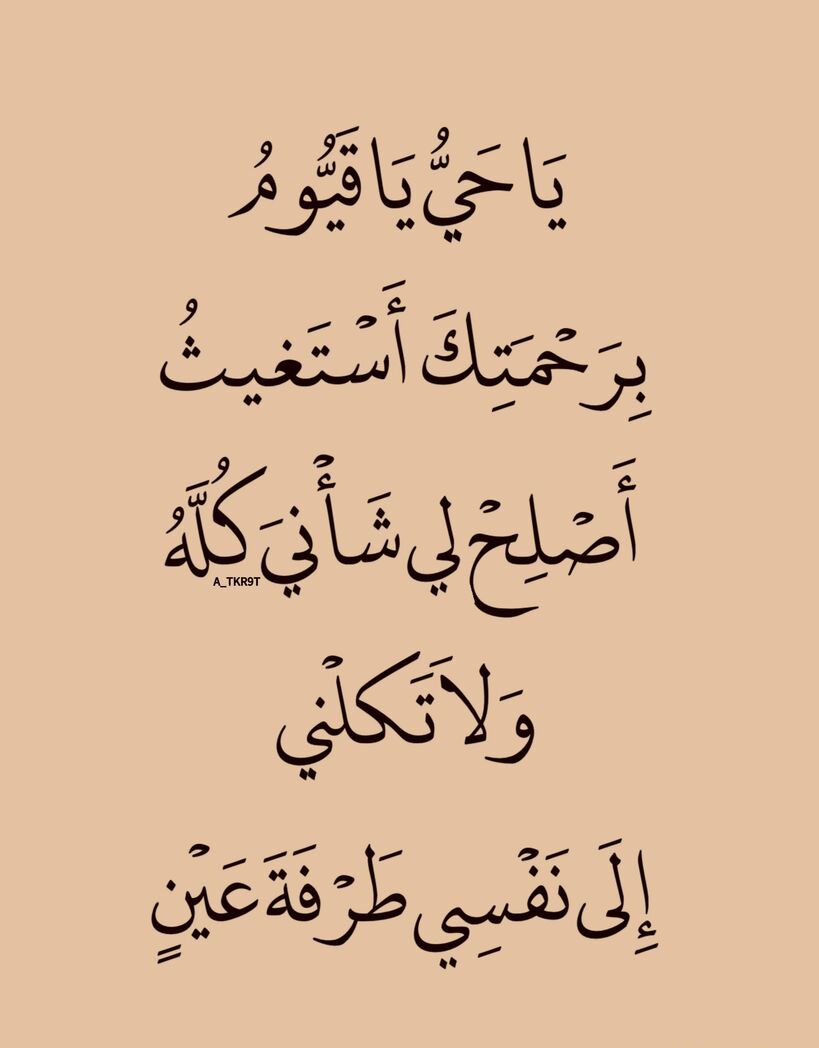 يَا حَيُّ يَا قَيُّومُ
بِرَحْمَتِكَ أَسْتَغيثُ
أَصْلِحْ لي شَأْنيَ كُلَّهُ
A_TKR9T
وَلاَ تَكلْني
إِلَى نَفْسِي طَرْفَةَ عَيْنٍ